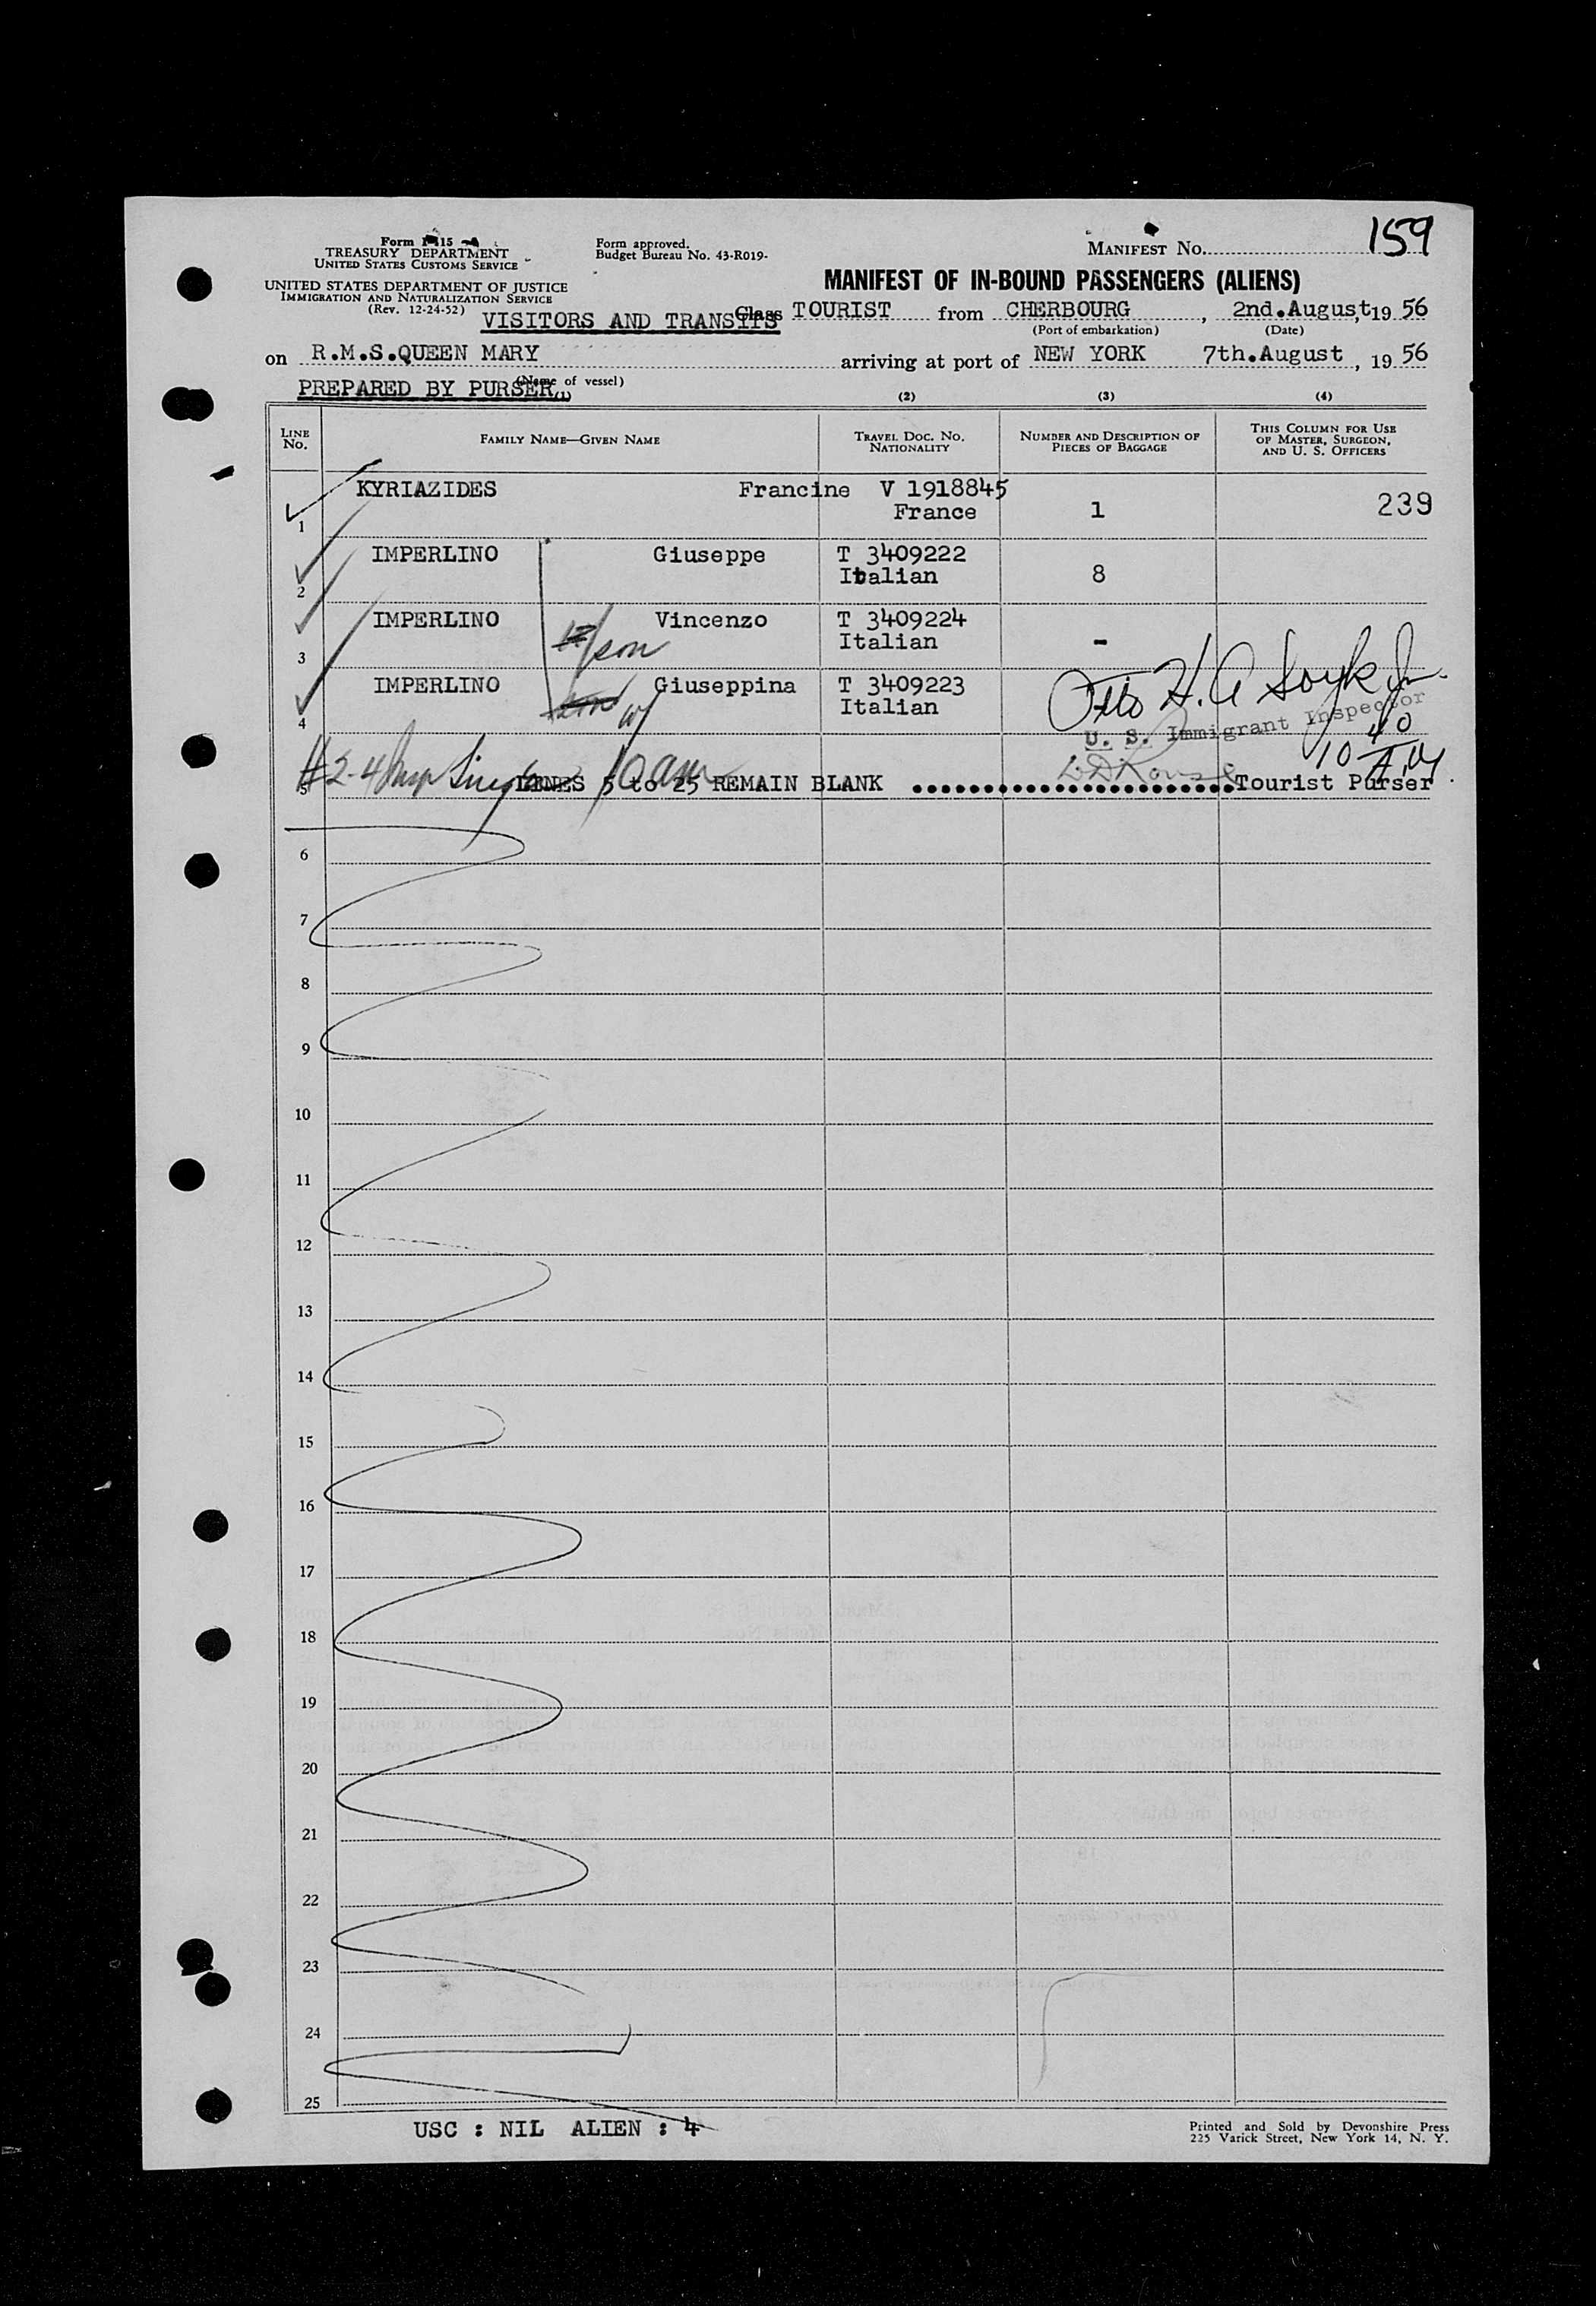 159
Form I-415
TREASURY DEPARTMENT
UNITED STATES CUSTOMS SERVICE
Form approved.
Budget Bureau No. 43-R019-
MANIFEST No.
UNITED STATES DEPARTMENT OF JUSTICE
IMMIGRATION AND NATURALIZATION SERVICE
(Rev. 12-24-52)
MANIFEST OF IN-BOUND PASSENGERS (ALIENS)
VISITORS AND TRANSITS
Class TOURIST from CHERBOURG, 2nd.August, 19 56
(Port of embarkation) (Date)
on R.M.S.QUEEN MARY arriving at port of NEW YORK 7th.August, 19 56
(Name of vessel)
PREPARED BY PURSER
(1) (2) (3) (4)
LINE No. FAMILY NAME—GIVEN NAME TRAVEL DOC. No. NATIONALITY NUMBER AND DESCRIPTION OF PIECES OF BAGGAGE THIS COLUMN FOR USE OF MASTER, SURGEON, AND U. S. OFFICERS
1 KYRIAZIDES Francine V 1918845
France 1 239
2 IMPERLINO Giuseppe T 3409222
Italian 8
3 IMPERLINO Vincenzo T 3409224
son Italian -
4 IMPERLINO Giuseppina T 3409223
w/ Italian
Otto H. A. Soyk Jr.
U. S. Immigrant Inspector
10 40 AM
#2-4 10 am
5 LINES 5 to 25 REMAIN BLANK ........................Tourist Purser
6
7
8
9
10
11
12
13
14
15
16
17
18
19
20
21
22
23
24
25
USC : NIL ALIEN : 4
Printed and Sold by Devonshire Press
225 Varick Street, New York 14, N. Y.